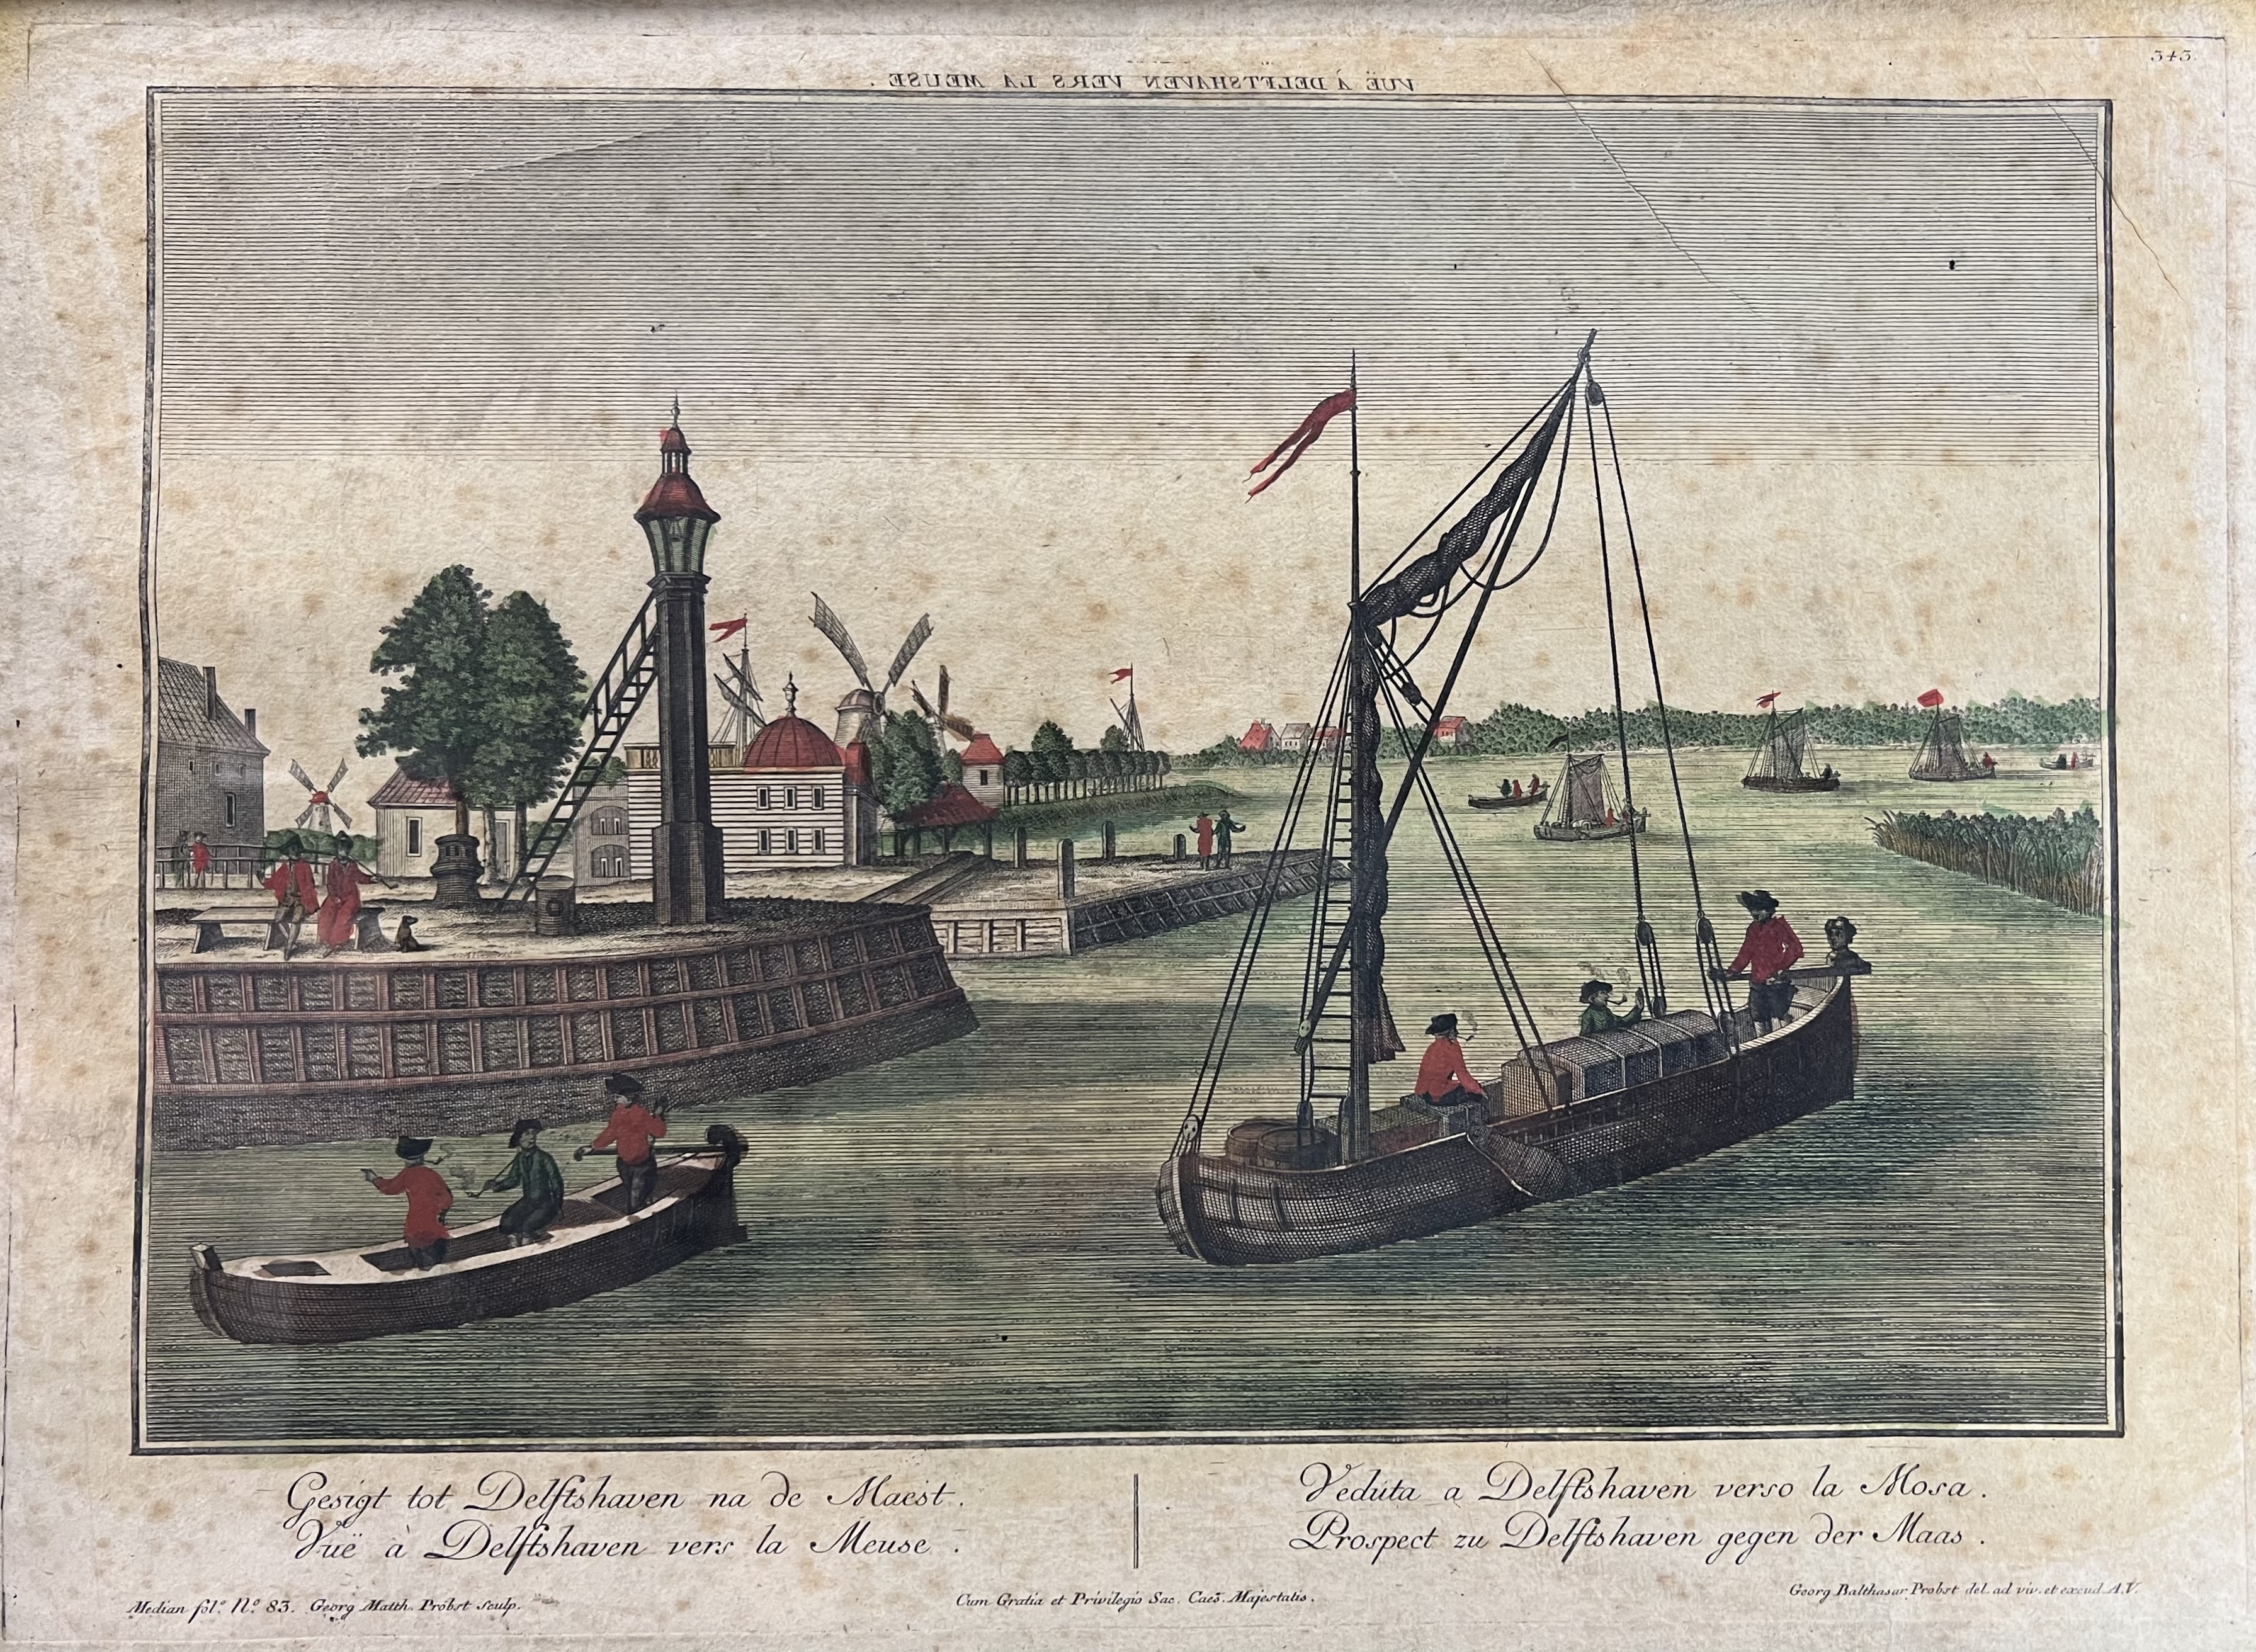 343.
VUË À DELFTSHAVEN VERS LA MEUSE.
Gesigt tot Delftshaven na de Maest.
Vuë à Delftshaven vers la Meuse.
Veduta a Delftshaven verso la Mosa.
Prospect zu Delftshaven gegen der Maas.
Median fol.º N.º 83. Georg Matth. Probst sculp.
Cum Gratia et Privilegio Sac. Caes. Majestatis.
Georg Balthasar Probst del. ad viv. et excud. A.V.